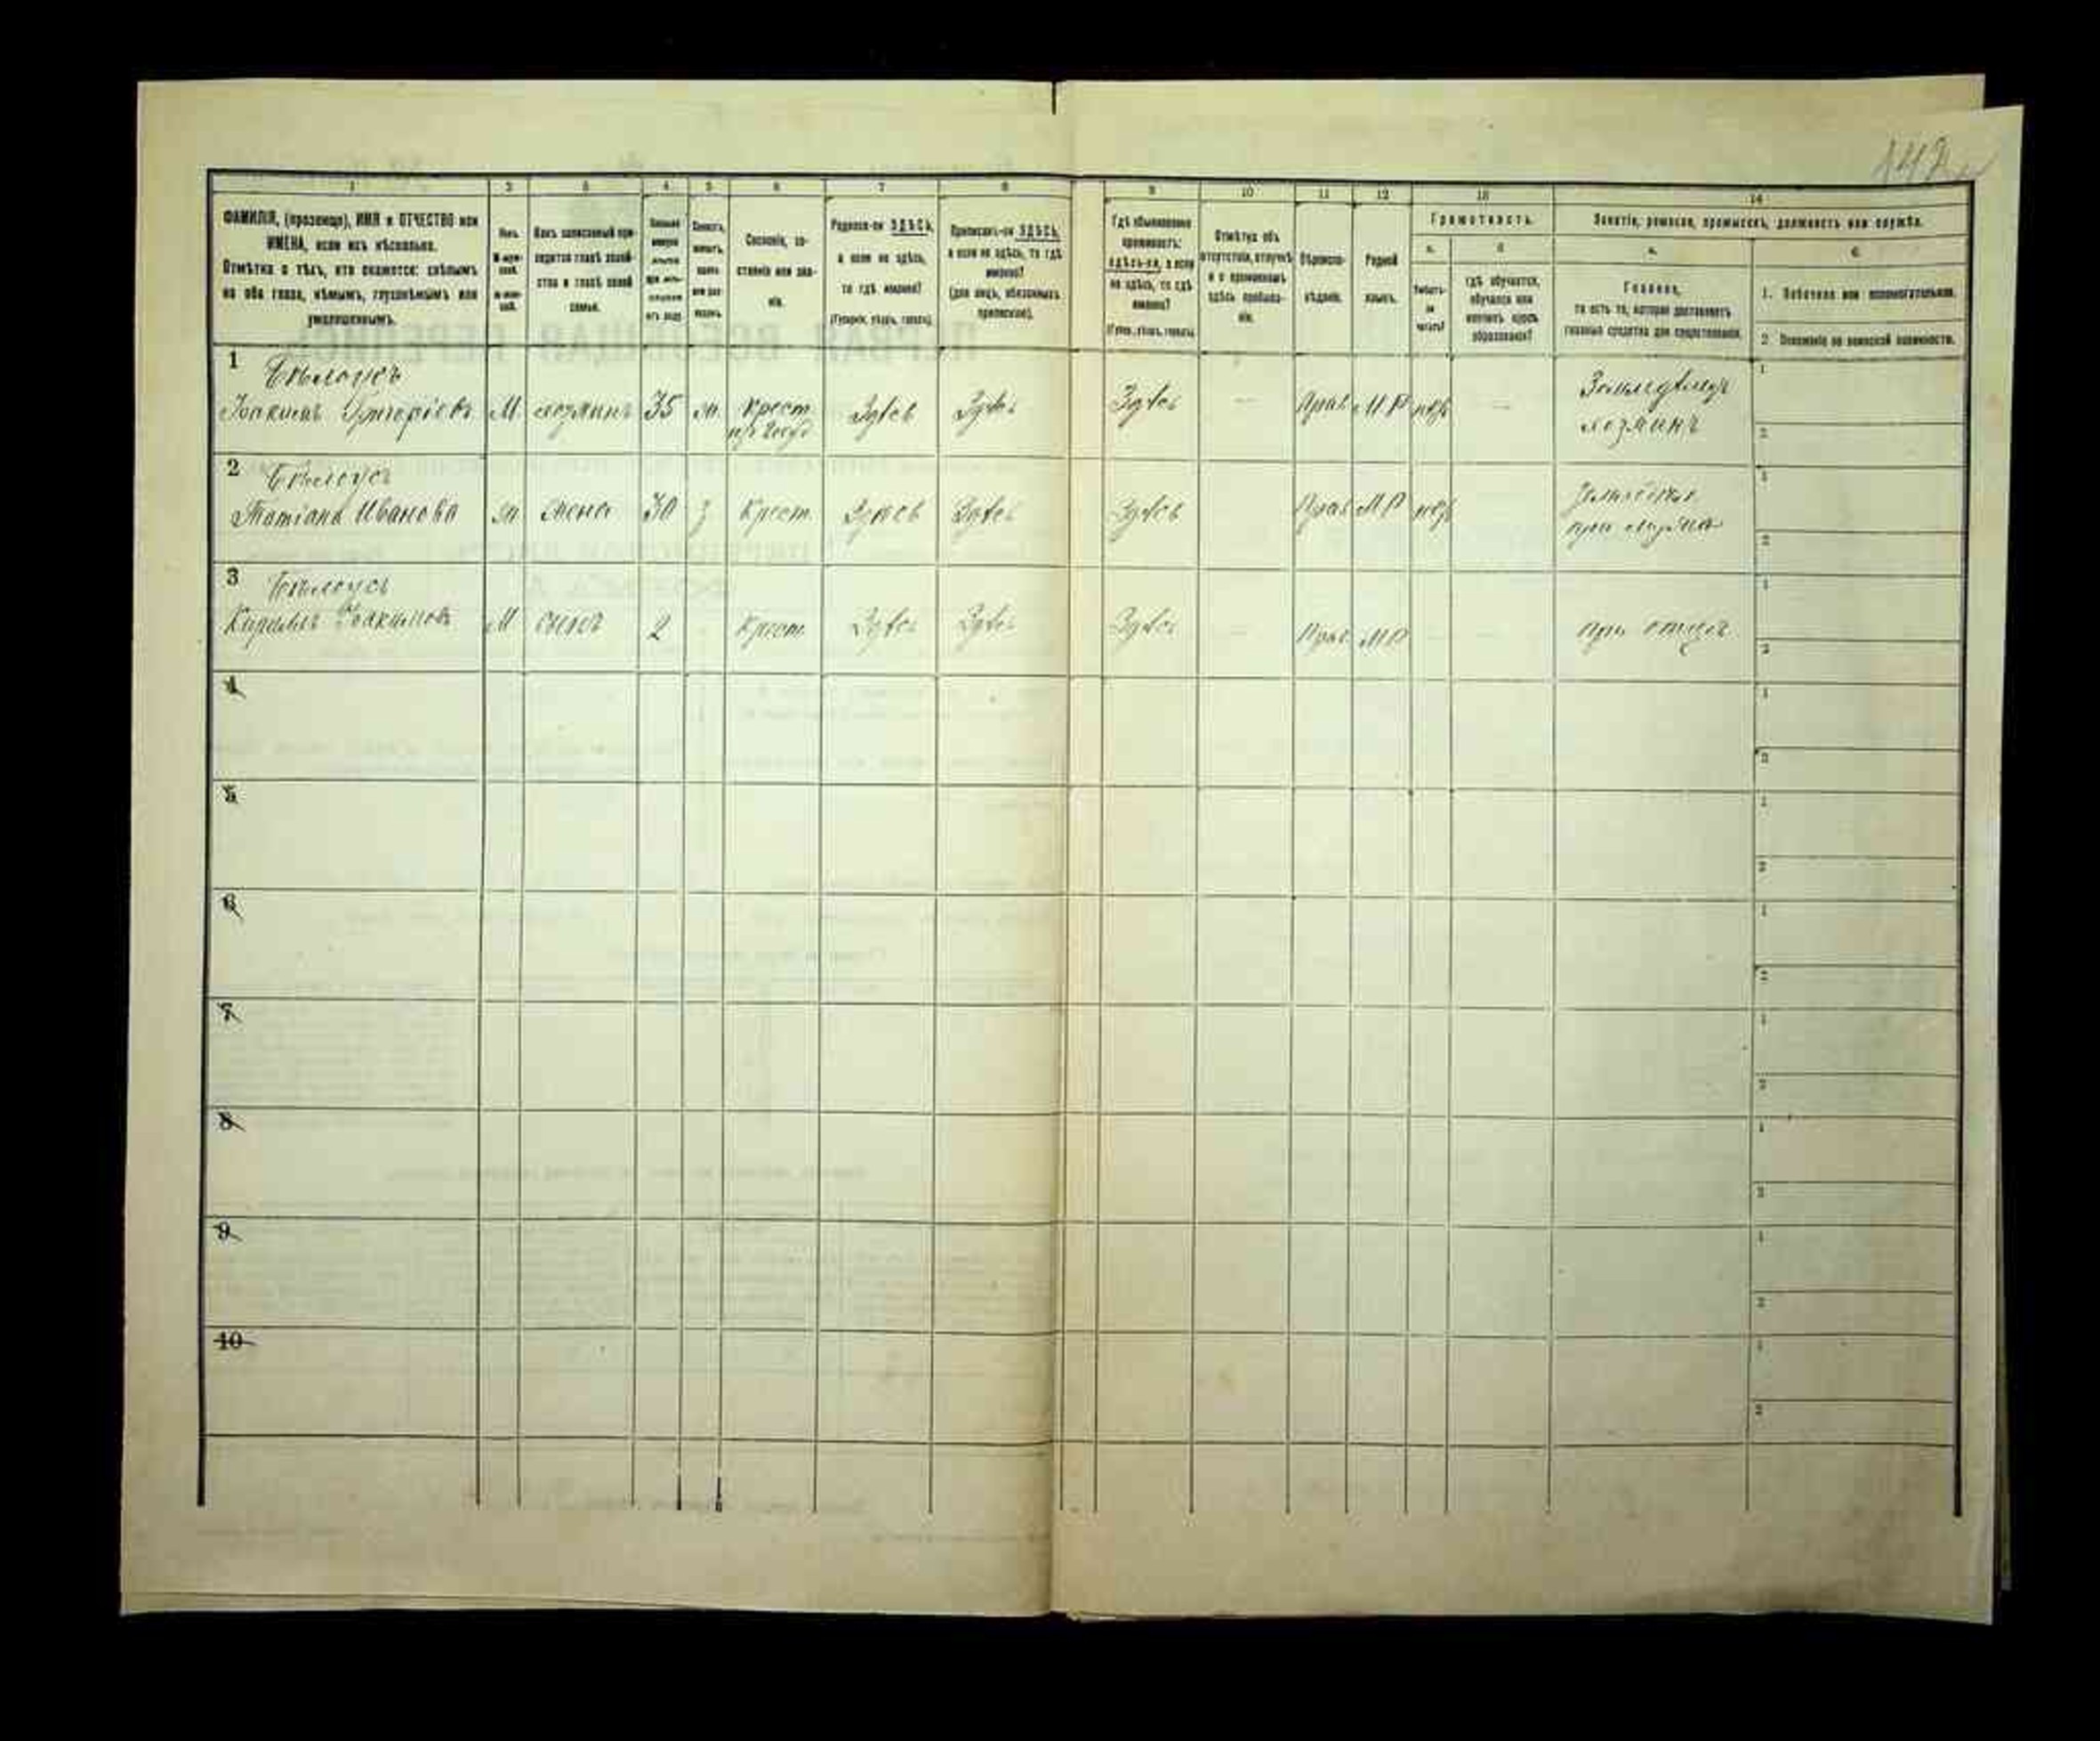 1 2 3 4 5 6 7 8 9 10 11 12 13 14
ФАМИЛІЯ, (прозвище), ИМЯ и ОТЧЕСТВО или
ИМЕНА, если ихъ нѣсколько.
Отмѣтка о тѣхъ, кто окажется: слѣпымъ
на оба глаза, нѣмымъ, глухонѣмымъ или
умалишеннымъ.
Полъ.
Какъ записанный при-
ходится главѣ хозяй-
ства и главѣ своей
семьи.
Сословіе, со-
стояніе или зва-
ніе.
Родился-ли ЗДѢСЬ,
а если не здѣсь,
то гдѣ именно?
(Губернія, уѣздъ, городъ).
Приписанъ-ли ЗДѢСЬ,
а если не здѣсь, то гдѣ
именно?
(для лицъ, обязанныхъ
припискою).
Гдѣ обыкновенно
проживаетъ:
здѣсь-ли, а если
не здѣсь, то гдѣ
именно?
(Губер., уѣздъ, городъ).
Отмѣтка объ
отсутствіи, отлучкѣ
и о временномъ
здѣсь пребыва-
ніи.
Вѣроиспо-
вѣданіе.
Родной
языкъ.
Грамотность.
а. б.
Умѣетъ-
ли
читать?
гдѣ обучается,
обучался или
кончилъ курсъ
образованія?
Занятіе, ремесло, промыселъ, должность или служба.
а. б.
Главное,
то есть то, которое доставляетъ
главныя средства для существованія.
1. Побочное или вспомогательное.
2. Положеніе по воинской повинности.
1 Бѣлоусъ
Іоакимъ Григоріевъ М хозяинъ 35 ж крест. Здѣсь Здѣсь Здѣсь — Прав М.Р нѣтъ — Земледѣлецъ
хозяинъ
1
2
2 Бѣлоусъ
Татіана Иванова ж жена 30 з Крест. Здѣсь Здѣсь Здѣсь Прав М Р нѣтъ
при мужѣ
1
2
3 Бѣлоусъ
Кириллъ Іоакимовъ М сынъ 2 Крест Здѣсь Здѣсь Здѣсь Прав МР при отцѣ
1
2
4
1
2
5
1
2
6
1
2
7
1
2
8
1
2
9
1
2
10
1
2